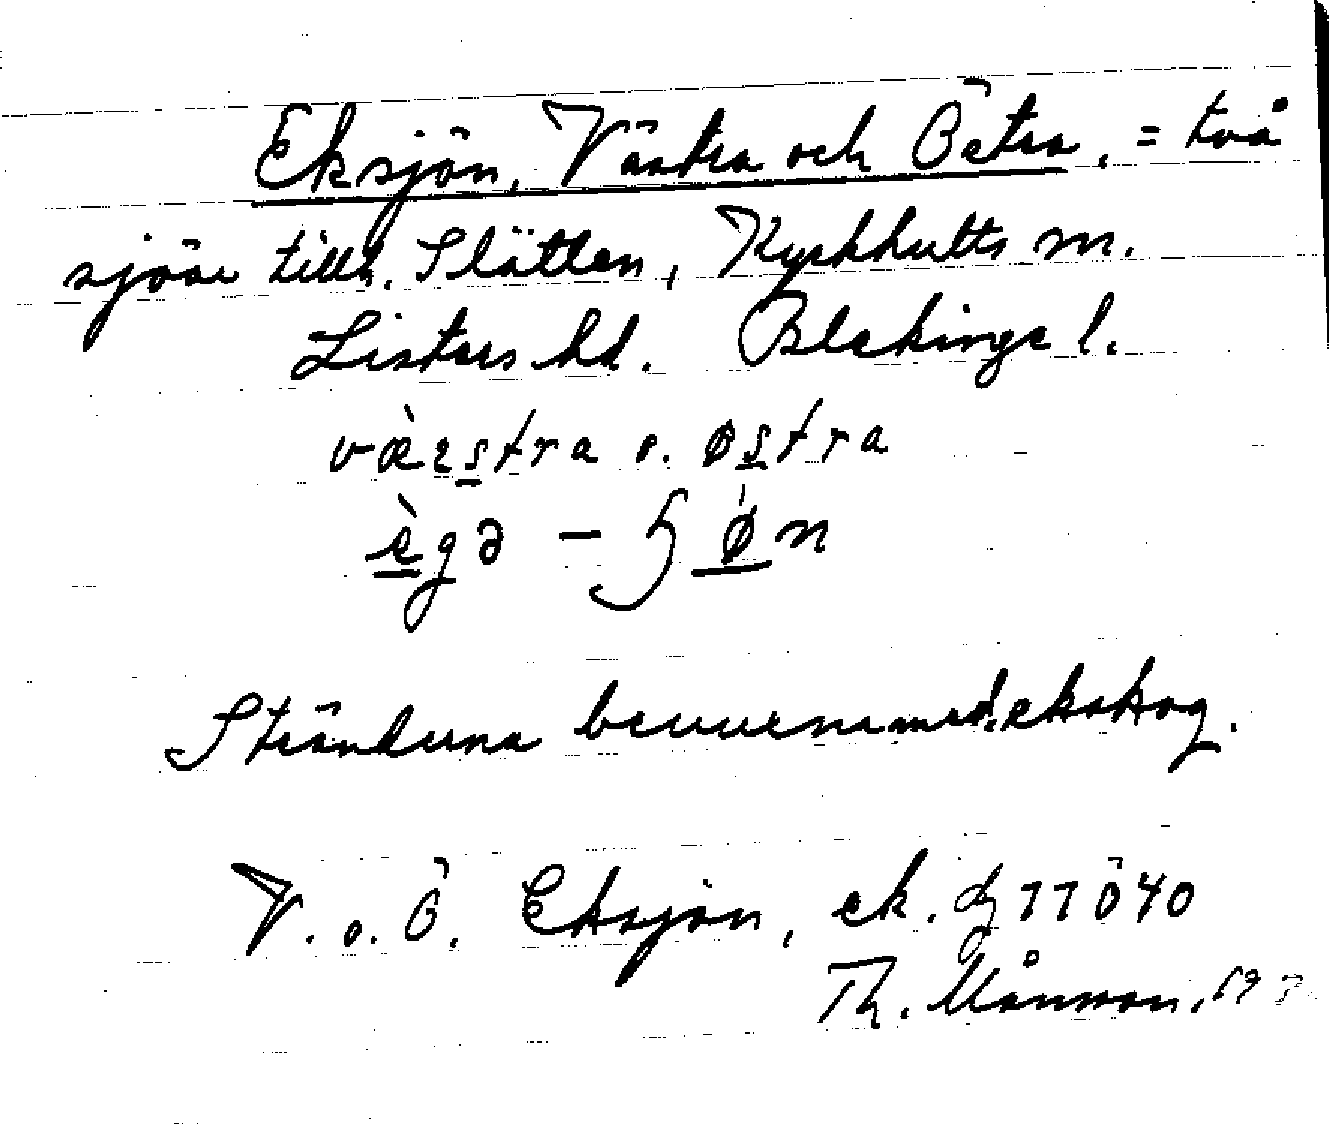 Eksjön, Västra och Östra, = två
sjöar tillh. Slätten, Kyrkhults sn.
Listers hd. Blekinge l.
væ̀ʀstra o. østra
ègə - ɧøn
Stränderna bevuxna med ekskog.
V. o. Ö. Eksjön, ek. 77Ö40
Th. Månsson,